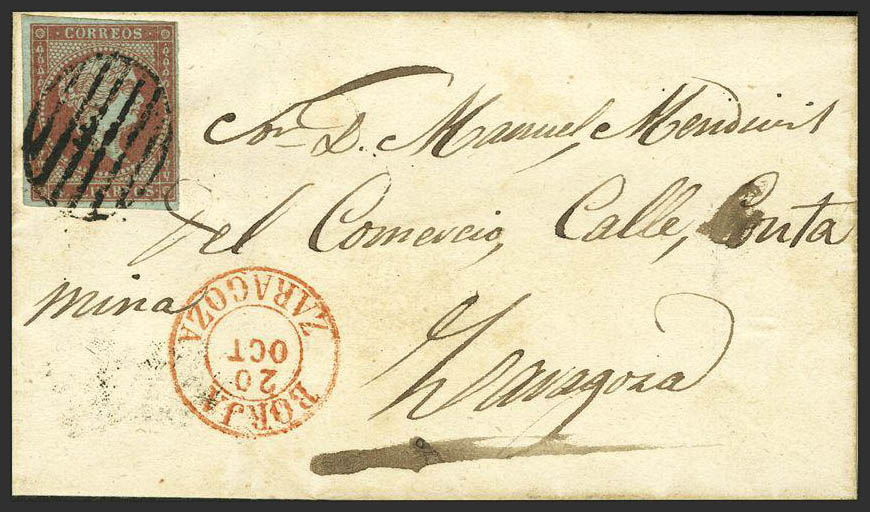 CORREOS
Sor. D. Manuel Mendivil
Del Comercio, Calle, Conta
mina
Zaragoza
BORJA
20
OCT
ZARAGOZA